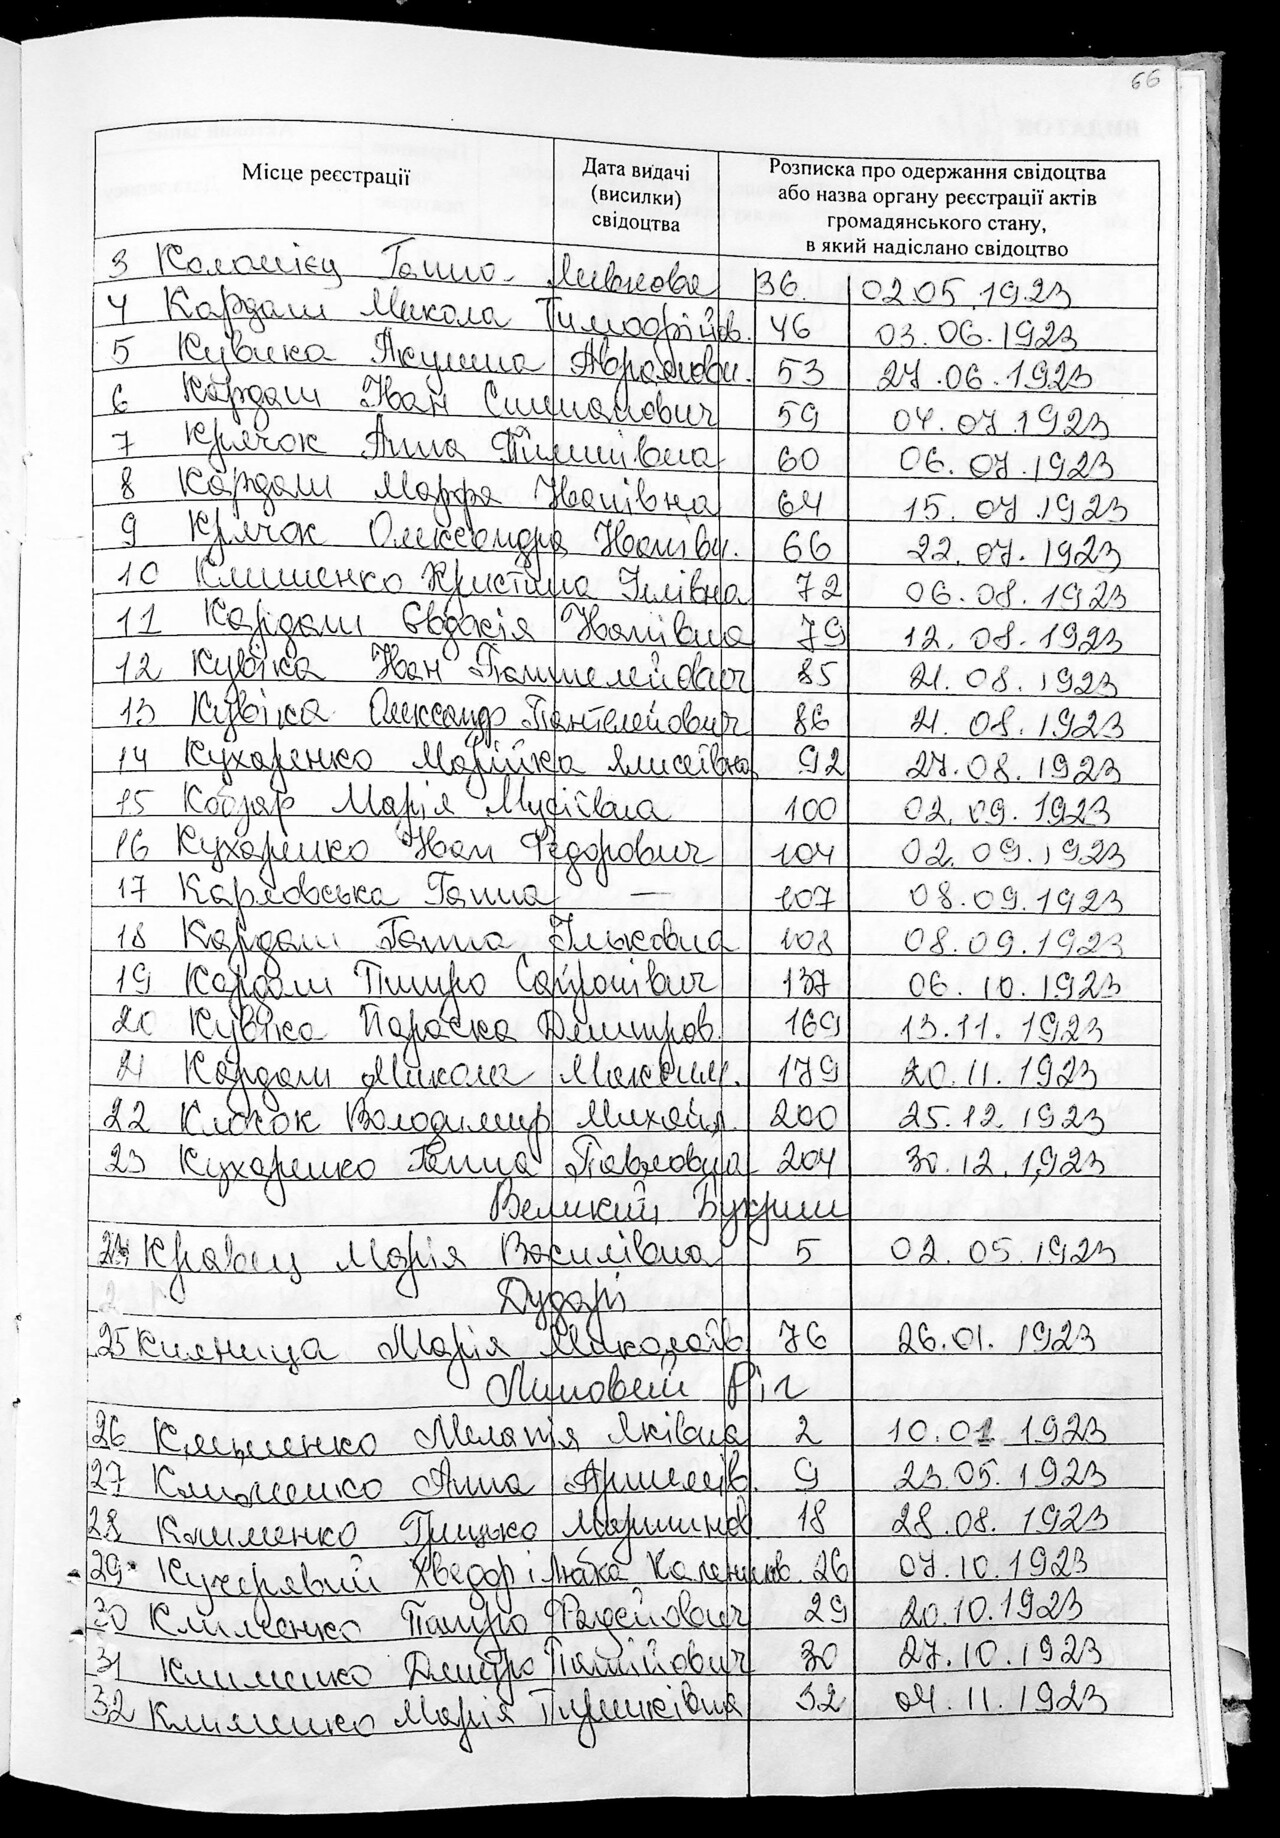 66
Місце реєстрації
Дата видачі
(висилки)
свідоцтва
Розписка про одержання свідоцтва
або назва органу реєстрації актів
громадянського стану,
в який надіслано свідоцтво
3 Коломієц Ганна 36. 02.05.1923
4 Кардаш Микола Тимофійов. 46 03.06.1923
5 Кувика Акулина Аврамови. 53 27.06.1923
6 Кардаш Іван 59 04.07.1923
7 Крячок Анна 60 06.07.1923
8 Кардаш Марфа Іванівна 64 15.07.1923
9 Крячок Олександра Іванівн. 66 22.07.1923
10 Клименко Христина Ілівна 72 06.08.1923
11 Кардаш Євдокія Іванівна 79 12.08.1923
12 Кувіка Іван Пантелейович 85 21.08.1923
13 Кувіка Олександр Пантелейович 86 21.08.1923
14 Кухаренко МарійкаЯлисеївна 92 27.08.1923
15 Кобзар Марія Мусіївна 100 02.09.1923
16 Кухаренко Іван Федорович 104 02.09.1923
17 Карловська Ганна — 107 08.09.1923
18 Кардаш Ганна Ільковна 108 08.09.1923
19 Кардаш Петро 137 06.10.1923
20 Кувіка Параска Дмитров. 169 13.11.1923
21 Кардаш Микола Максим. 179 20.11.1923
22 Клочок Володимир Михайл. 200 25.12.1923
23 Кухаренко Ганна Павловна 204 30.12.1923
Великий Букрин
24 Кравец Марія Василівна 5 02.05.1923
Дударі
25 Книница Марія Миколаїв 76 26.01.1923
Липовий Ріг
26 Клименко Меланія Яківна 2 10.01.1923
27 Клименко Анна Артемів. 9 23.05.1923
28 Клименко Грицько Мартинов. 18 28.08.1923
29 Кучерявий Хведор і Любка Калеников 26 07.10.1923
30 Клименко Петро Фадейович 29 20.10.1923
31 Клименко Дмитро 30 27.10.1923
32 Клименко Марія 32 04.11.1923